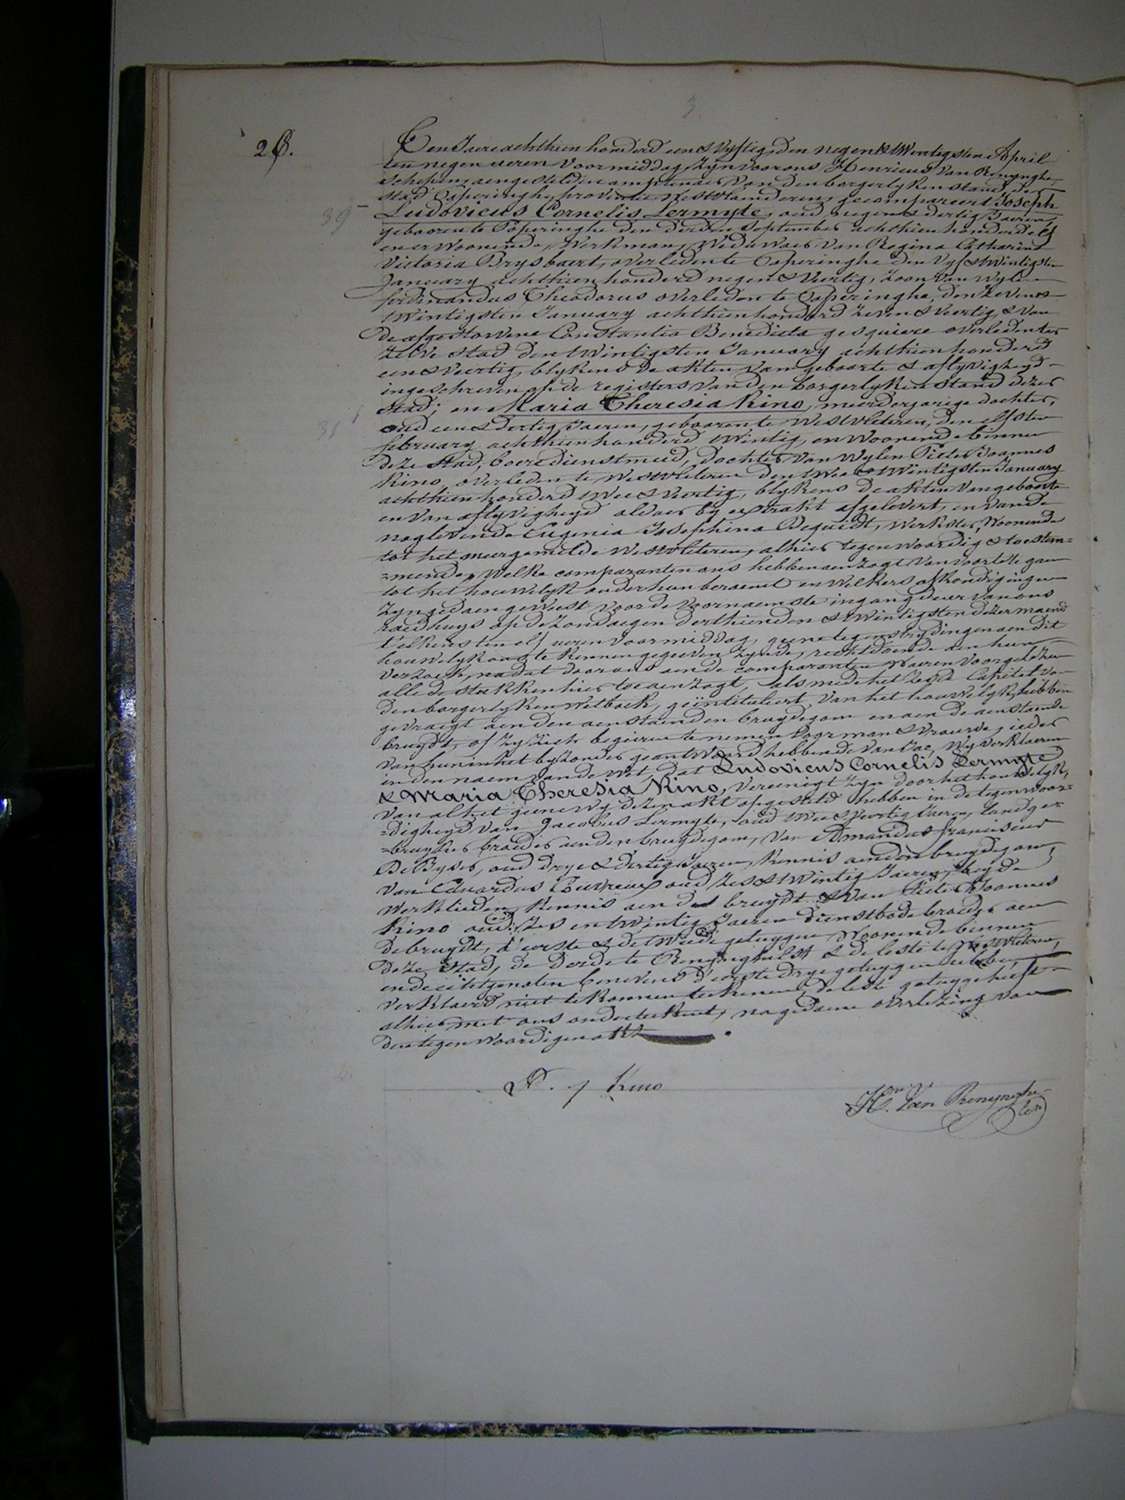 3
28.
Den Jaere achthien honderd een & vyftig, den negen & twintigsten April
ten negen ueren voormiddag, zyn voor ons Henricus Van Renynghe
schepen aengestelden amptenaer van den borgerlyken stand der
stad Poperinghe, provintie Westvlaenderen, gecompareert Joseph
39
Ludovicus Cornelis Lermyte, oud negen & dertig Jaeren,
geboren te Poperinghe den derden September achthien honderd elf
en er woonende, werkman, weduwaer van Regina Catharina
Victoria Brysbaert, overleden te Poperinghe den vyf & twintigsten
January achthien honderd negen & veertig, zoon van wylen
ferdinandus Theodorus overleden te Poperinghe, den zeven &
twintigsten January achthien honderd zeven & veertig & van
de afgestorvene Constantia Benedicta gesquiere overleden ter
zelve stad den twintigsten January achthien honderd
een & veertig, blykens de akten van geboorte & aflyvigheyd
ingeschreven op de registers van den borgerlyken stand dezer
stad; en Maria Theresia Kino, meerderjarige dochter,
31
oud een & dertig Jaeren, geboren te Westvleteren, den elfsten
february achthien honderd twintig, en woonende binnen
deze stad, boeredienstmeid, dochter van wylen Pieter Joannes
Kino, overleden te Westvleteren den twee & twintigsten January
achthien honderd twee & veertig, blykens de akten van geboorte
en van aflyvigheyd aldaer by extrakt afgelevert, en van de
naglevende Eugenia Josephina Dequidt, werkster, woonende
tot het meergemelde Westvleteren, alhier tegenwoordig & toestem-
mende, welke comparanten ons hebben aenzogt van voort te gaen
tot het houwelyk onder hun beraemt en welkers afkondigingen
zyn gedaen geweest voor de voornaemste ingangdeur van ons
raedhuys op de zondagen derthienden & twintigsten dezer maend
t'elkens ten elf ueren voormiddag, geene tegenstrydingen aen dit
houwelyk ons te kennen gegeven zynde, rechtdoende aen hun
verzoek, na dat daer ons aen de comparanten waeren voorgelezen
alle de stukken hier toe aenzogt, als mede het zesde Capitel van
den borgerlyken wetboek, geïntituleert van het houwelyk, hebben
gevraegt aen den aenstaenden bruydegom en aen de aenstaende
bruydt, of zy zich begeeren te nemen voor man & vrouwe; ieder
van hun in het byzonder geantwoord hebbende van Ja, wy verklaeren
in den naem van de wet dat Ludovicus Cornelis Lermyte
& Maria Theresia Kino, vereenigt zyn door het houwelyk,
van al het geene wy dezen akt opgesteld hebben in de tegenwoor-
digheyd van Jacobus Lermyte, oud twee & veertig Jaeren, landge-
bruyker broeder aen den bruydegom, van Amandus franciscus
De Byser, oud drye & dertig Jaeren, kennis aen den bruydegom,
van Eduardus oud zes & twintig Jaeren, beyde
werklieden, kennis aen de bruydt & van Pieter Joannes
Kino oud zes en twintig Jaeren dienstbode broeder aen
de bruydt, d'eerste & de tweede getuygen woonende binnen
deze stad, de derde te Renynghelst & de leste te Westvleteren,
en de echtgenoten benevens d'eerste drye getuygen hebben
verklaerd niet te konnen teekenen, de leste getuyge heeft
alhier met ons onderteekent, na gedaene overlezing van
den tegenwoordigen akt.
P. J Kino
Hri. Van Renynghe